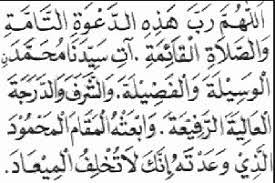 اَللّٰهُمَّ رَبَّ هَذِهِ الدَّعْوَةِ التَّامَّةِ
وَالصَّلَاةِ الْقَائِمَةِ. آتِ سَيِّدَنَا مُحَمَّدَنِ
الْوَسِيلَةَ وَالْفَضِيلَةَ. وَالشَّرَفَ وَالدَّرَجَةَ
الْعَالِيَةَ الرَّفِيعَةَ. وَابْعَثْهُ الْمَقَامَ الْمَحْمُودَ
الَّذِي وَعَدْتَهُ إِنَّكَ لَا تُخْلِفُ الْمِيعَادَ.